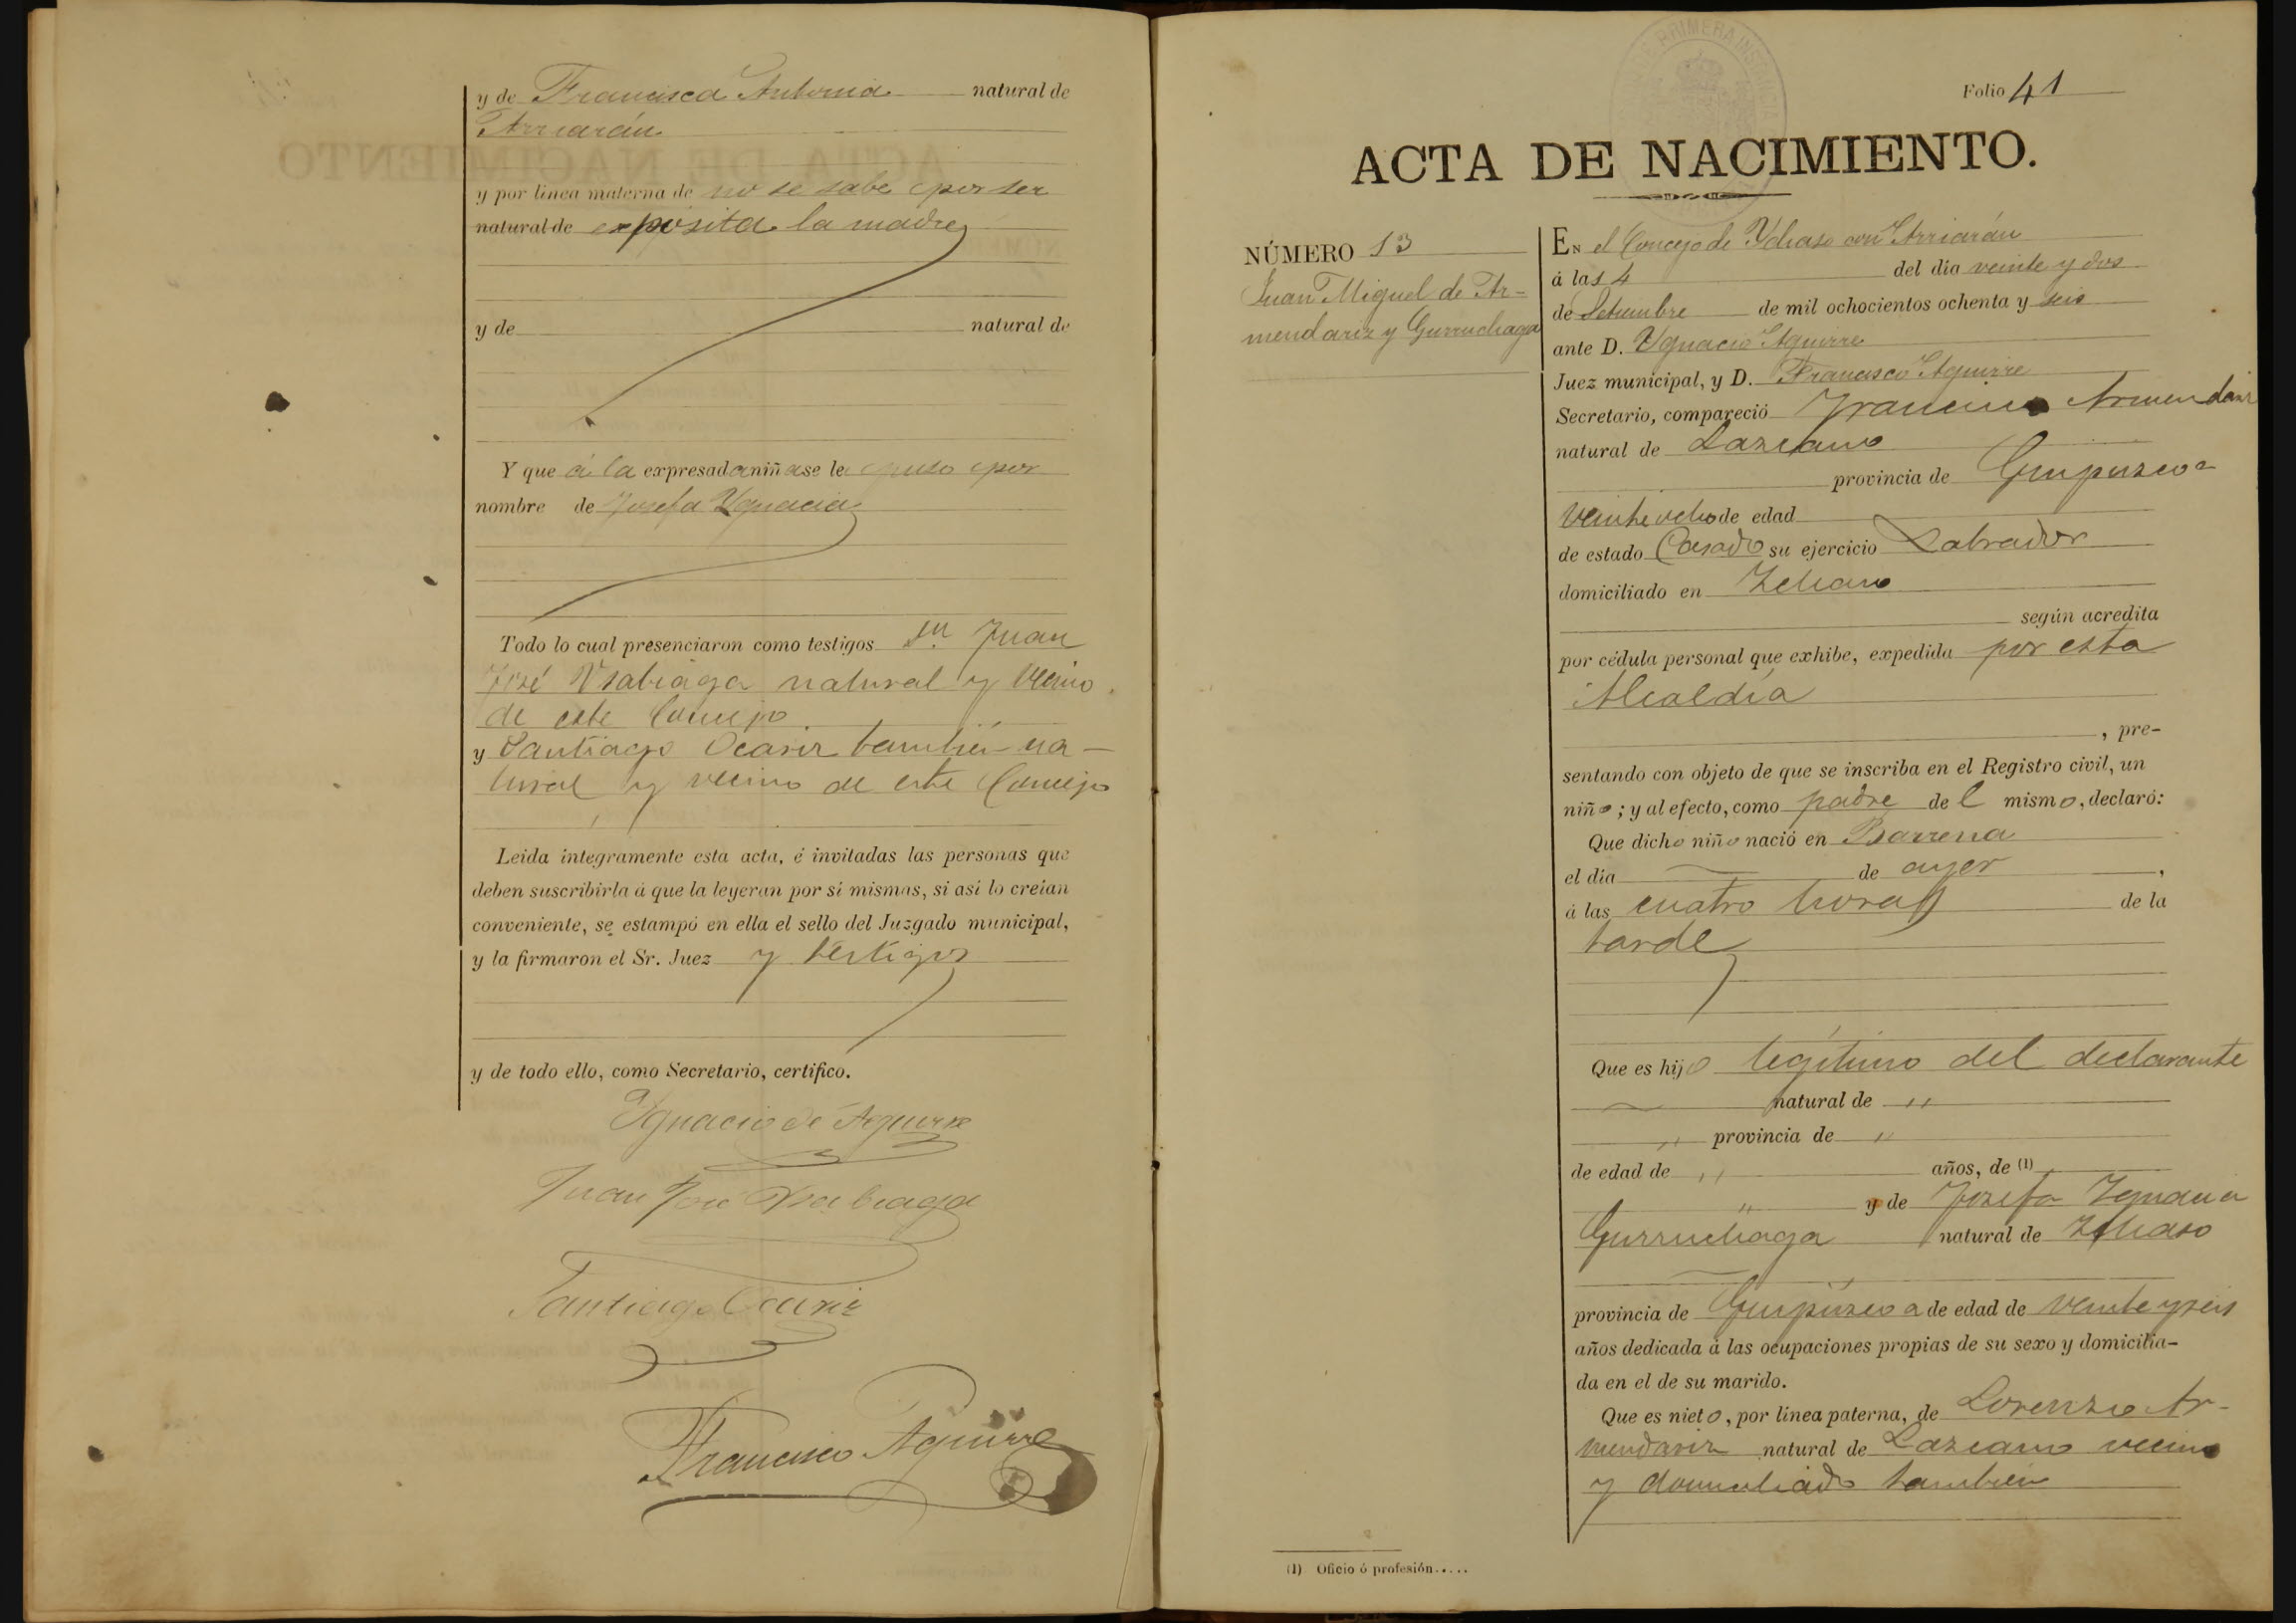 y de Francisca Antonia natural de
Arriarán
y por línea materna de no se sabe por ser
natural de expósita la madre
y de natural de
Y que á la expresada niña se le puso por
nombre de Josefa Ygnacia
Todo lo cual presenciaron como testigos Juan
José Usabiaga natural y vecino
de este Concejo
y Santiago Ocariz también na-
tural y vecino de este Concejo
Leida íntegramente esta acta, é invitadas las personas que
deben suscribirla á que la leyeran por sí mismas, si así lo creían
conveniente, se estampó en ella el sello del Juzgado municipal,
y la firmaron el Sr. Juez y testigos
y de todo ello, como Secretario, certifico.
Ygnacio de Aguirre
Juan José Usabiaga
Santiago Ocariz
Francisco Aguirre
Folio 41
ACTA DE NACIMIENTO.
NÚMERO 13
Juan Miguel de Ar-
mendariz y Gurruchaga
EN el Concejo de Ychaso con Arriarán
á las 4 del día veinte y dos
de Setiembre de mil ochocientos ochenta y seis
ante D. Ygnacio Aguirre
Juez municipal, y D. Francisco Aguirre
Secretario, compareció Francisco Armendariz
natural de Lazcano
provincia de Guipuzcoa
veinte ocho de edad
de estado Casado su ejercicio Labrador
domiciliado en
según acredita
por cédula personal que exhibe, expedida por esta
Alcaldía
, pre-
sentando con objeto de que se inscriba en el Registro civil, un
niño; y al efecto, como padre del mismo, declaró:
Que dicho niño nació en Barrena
el día de ayer,
á las cuatro horas de la
tarde
Que es hijo legítimo del declarante
natural de "
" provincia de "
de edad de " años, de (1)
" y de Josefa Ignacia
Gurruchaga natural de Ichaso
provincia de Guipúzcoa de edad de veinte y seis
años dedicada á las ocupaciones propias de su sexo y domicilia-
da en el de su marido.
Que es nieto, por línea paterna, de Lorenzo Ar-
mendariz natural de Lazcano vecino
y domiciliado también
(1) Oficio ó profesión.....